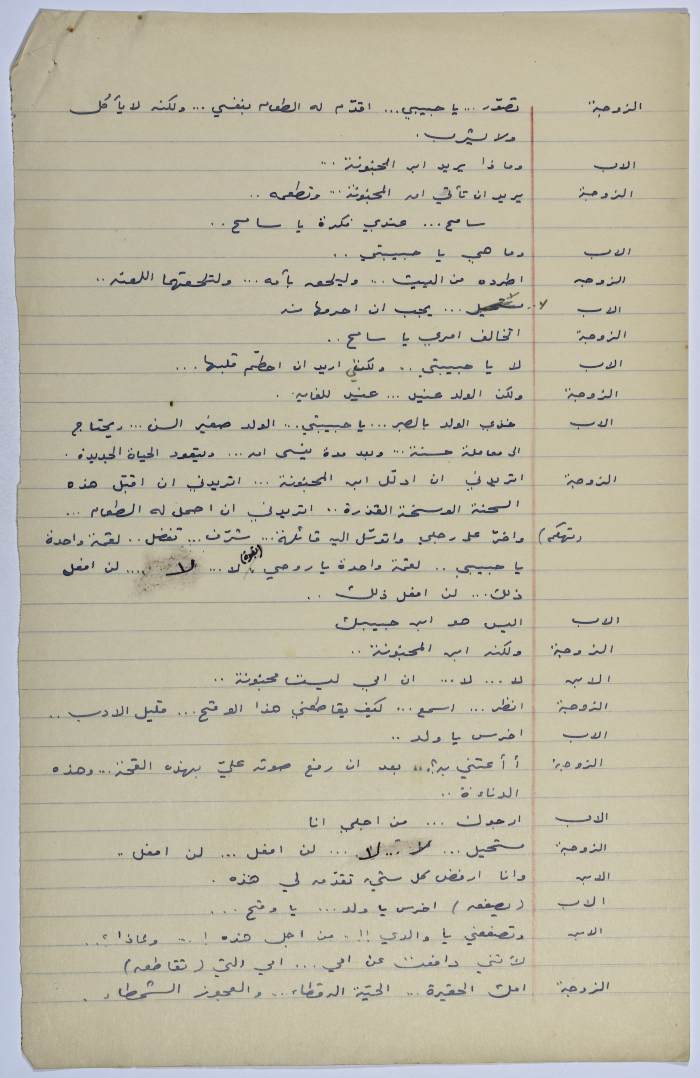 الزوجة تصوّر ... يا حبيبي... اقدّم له الطعام بنفسي ... ولكنه لا يأكل
ولا يشرب .
الاب وماذا يريد ابن المجنونة ...
الزوجة يريد ان تأتي امه المجنونة ... وتطعمه ..
سامح ... عندي فكرة يا سامح ..
الاب وما هي يا حبيبتي ..
الزوجة اطرده من البيت ... وليلحق بأمه ... ولتلحقهما اللعنة ..
الاب لا .. لا ... يجب ان احرمها منه
الزوجة اتخالف امري يا سامح ..
الاب لا يا حبيبتي .. ولكني اريد ان احطّم قلبها ...
الزوجة ولكن الولد عنيد ... عنيد للغاية .
الاب خذي الولد بالصبر ... يا حبيبتي .. الولد صغير السن ... ويحتاج
الى معاملة حسنة ... وبعد مدة ينسى امه ... ويتعود الحياة الجديدة .
الزوجة اتريدني ان ادلّل ابن المجنونة ... اتريدني ان اقبّل هذه
السحنة الوسخة القذرة .. اتريدني ان احمل له الطعام ...
(تهكم) واخرّ على رجلي واتوسّل اليه قائلة ... شرّف ... تفضل .. لقمة واحدة
يا حبيبي .. لقمة واحدة يا روحي (بقوة) لا ... لا .... لن افعل
ذلك ... لن افعل ذلك ..
الاب اليس هو ابن حبيبك
الزوجة ولكنه ابن المجنونة ..
الابن لا ... لا ... ان امي ليست مجنونة ..
الزوجة انظر ... اسمع ... كيف يقاطعني هذا الوقح ... قليل الادب ..
الاب اخرس يا ولد ..
الزوجة بعد ان رفع صوته عليّ بهذه القحة ... وهذه
الدناءة ..
الاب ارجوك ... من اجلي انا
الزوجة مستحيل ... لا .. لا ... لن افعل ... لن افعل ..
الابن وانا ارفض كل شيء تقدّمه لي هذه .
الاب (يصفعه) اخرس يا ولد ... يا وقح ...
الابن وتصفعني يا والدي !!. من اجل هذه ! ... ولماذا ؟..
لأنني دافعت عن امي ... امي التي (تقاطعه)
الزوجة امك الحقيرة ... الحيّة الرقطاء .. والعجوز الشمطاء .